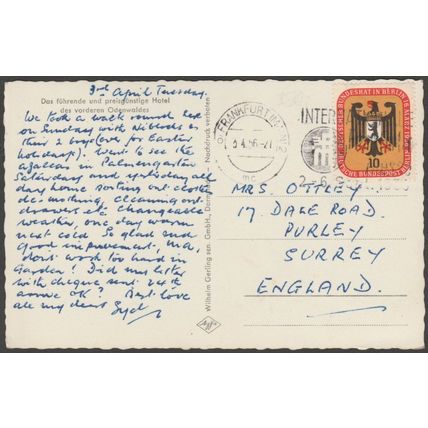 3rd April Tuesday.
Das führende und preisgünstige Hotel
des vorderen Odenwaldes
We took a walk round here
on Sunday with Niblocks and
their 2 boys (over for Easter
holidays). Went to see the
azaleas in Palmengarten
Saturday and yesterday all
day home sorting out clothes
des-mothing, cleaning out
drawers etc. Changeable
weather, one day warm
next cold. So glad and
good improvement, ma,
don't work too hard in
Garden! Did my letter
with cheque sent 24th
arrive OK? Best love
all my dear Syd
Wilhelm Gerling sen. GmbH., Darm
Nachdruck verboten
Agfa
FRANKFURT (MAIN) 2
3.4.56.-21
mc
INTER
DEUTSCHER BUNDESRAT IN BERLIN 16. MÄRZ 1956
10
DEUTSCHE BUNDESPOST BERLIN
MRS OTTLEY
17. DALE ROAD.
PURLEY
SURREY
ENGLAND.